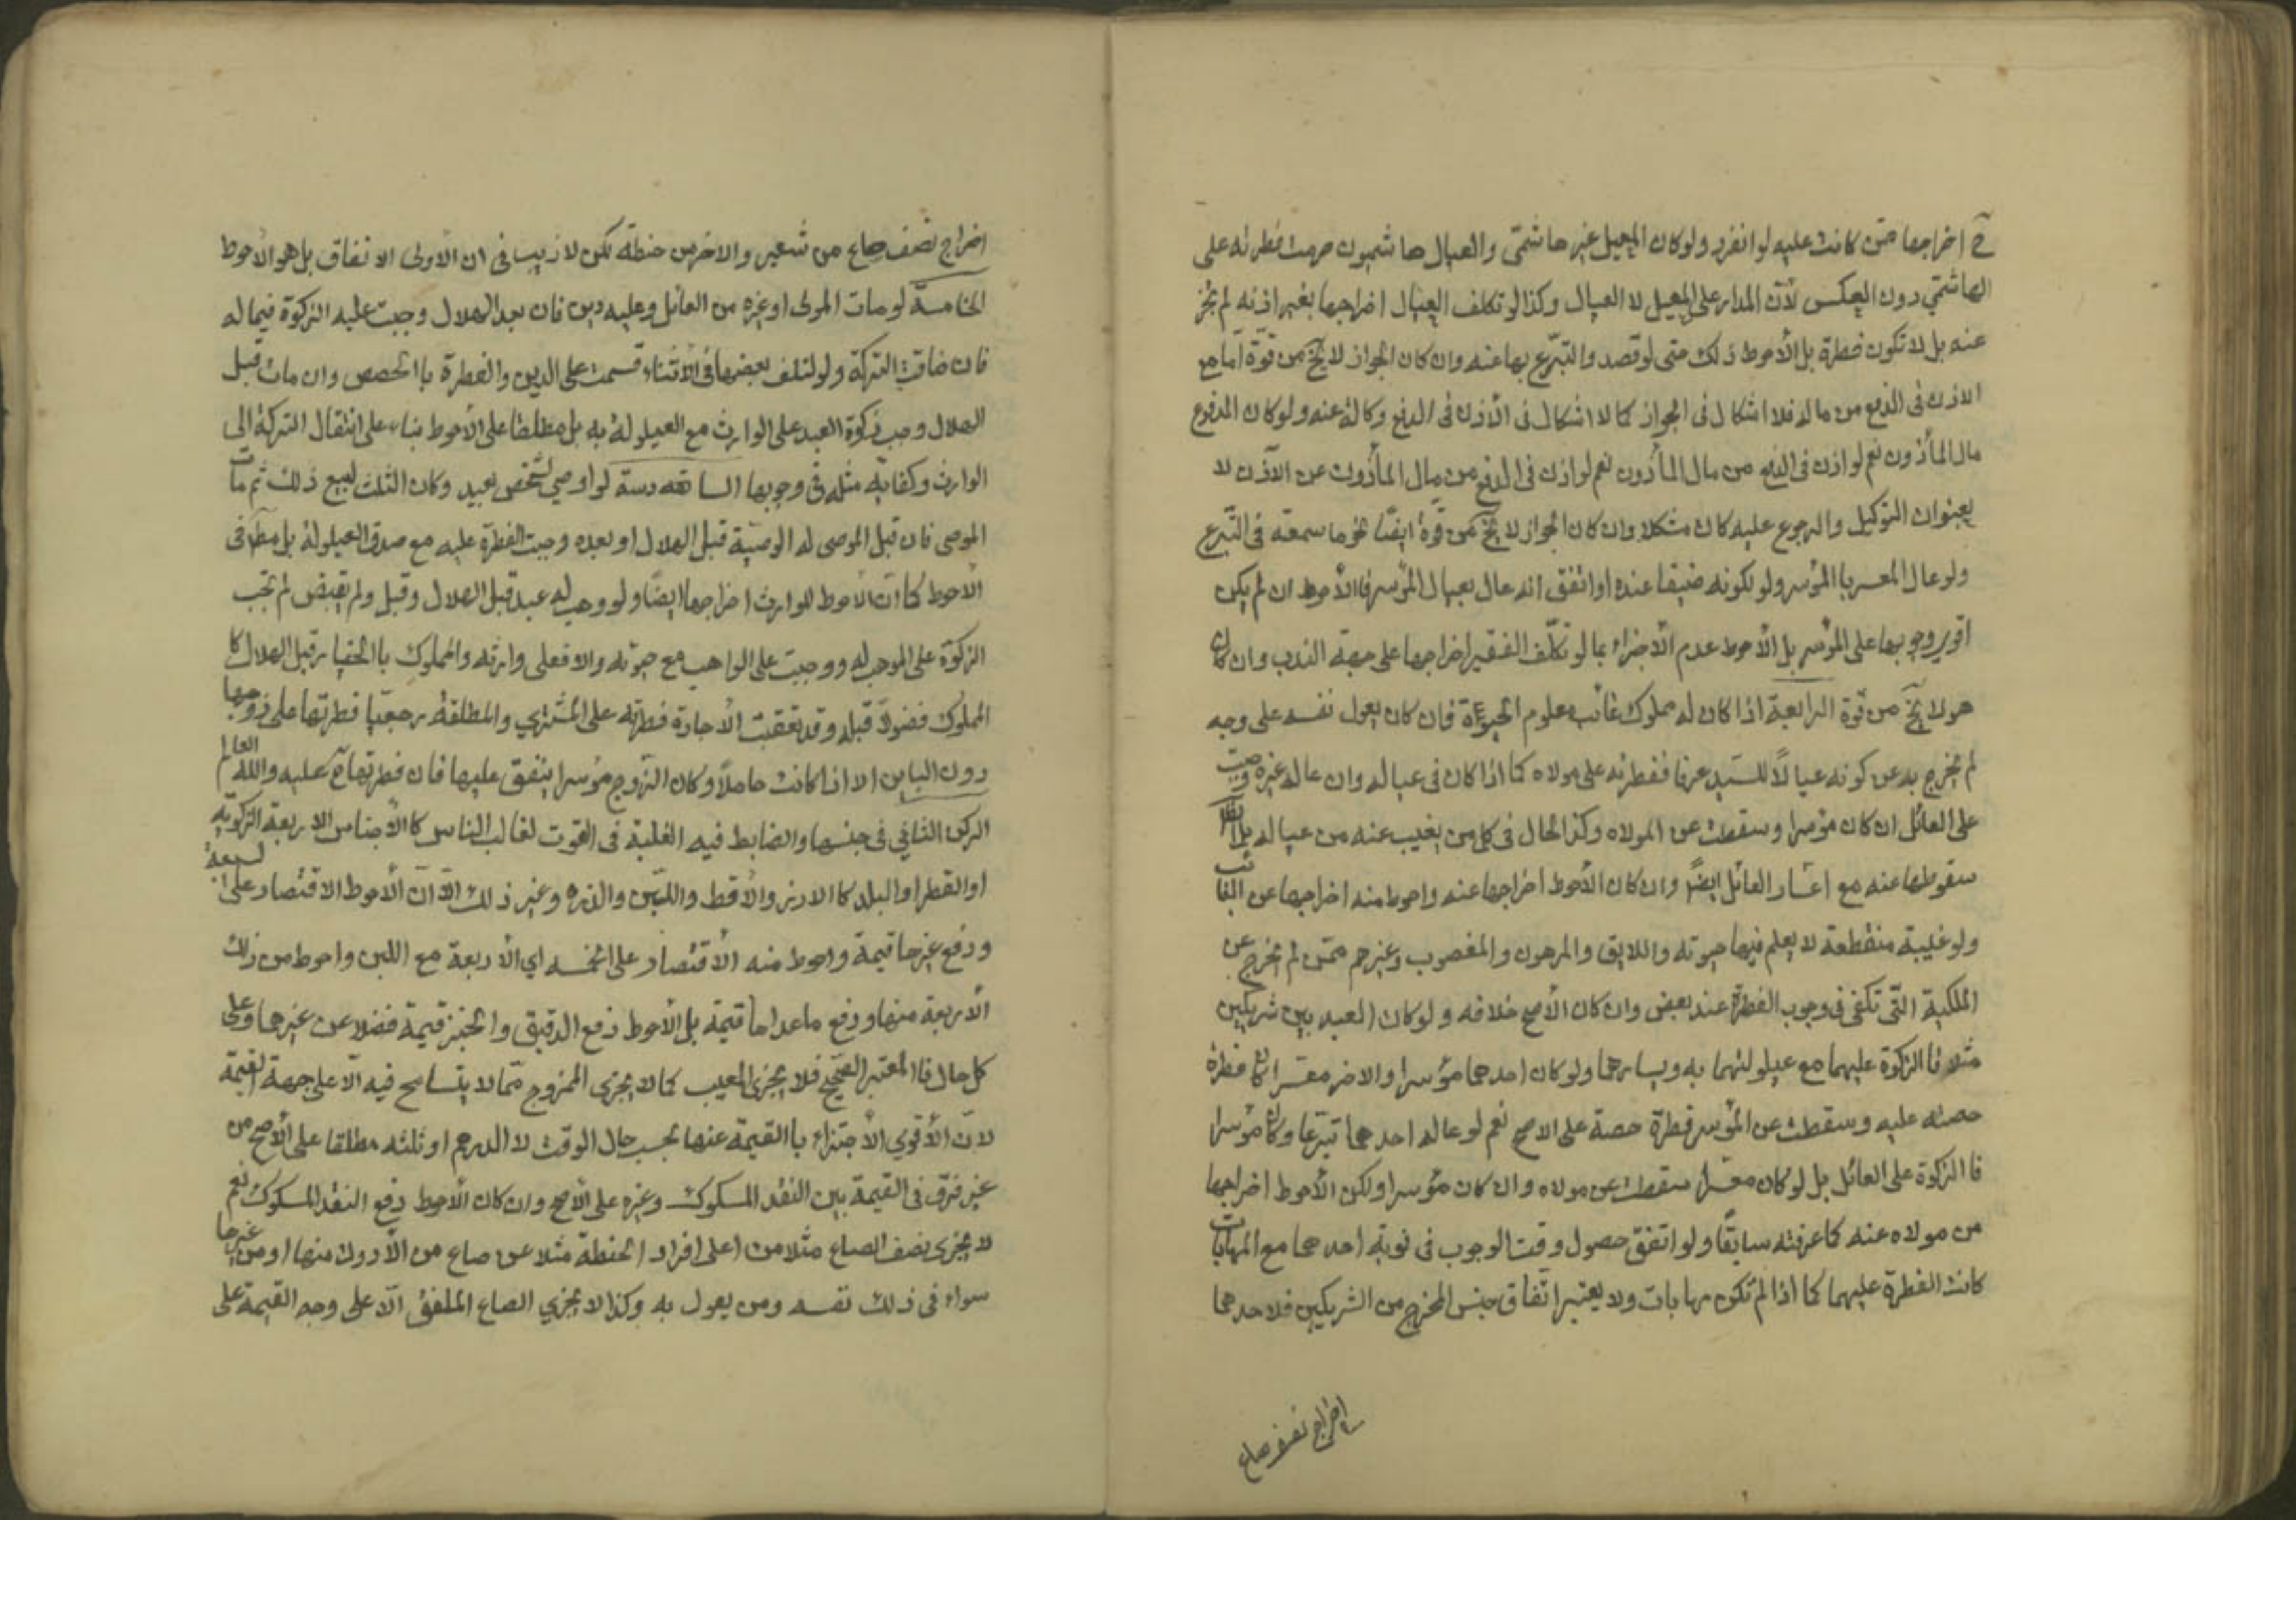 ح اخراجها ممن كانت عليه لو انفرد ولو كان المعيل غير هاشمى والعيال هاشميون حرمت فطرته على
الهاشمي دون العكس لأن المدار على المعيل لا العيال وكذا لو تكلف العيال اخراجها بغير اذنه لم يجز
عنه بل لا تكون فطرة بل الأحوط ذلك حتى لو قصد والتبرّع بها عنه وان كان الجواز لا يخ من قوّة اما مع
الاذن فى الدفع من ماله فلا اشكال فى الجواز كما لا اشكال فى الأذن فى الدفع وكالة عنه ولو كان المدفوع
مال المأذون نعم لو اذن فى الدفع من مال المأذون نعم لو اذن فى الدفع من مال المأذون عن الآذن لا
بعنوان التوكيل والرجوع عليه كان مشكلا وان كان الجواز لا يخ من قوة ايضًا نحو ما سمعته فى التبرع
ولو عال المعسر با المؤسر ولو لكونه ضيفا عنده او اتفق انه عال بعيال المؤسر فا الأحوط ان لم يكن
اقوي وجوبها على المؤسر بل الأحوط عدم الأجزاء بما لو تكلّف الفقير اخراجها على جهة الندب وان كان
هو لا يخ من قوة الرابعة اذا كان له مملوك غائب معلوم الحيوة فان كان يعول نفسه على وجه
لم يخرج به عن كونه عيالاً للسيد عرفا ففطرته على مولاه كما اذا كان فى عياله وان عاله غيره وجبت
على العائل ان كان مؤسرا وسقطت عن المولاه وكذا الحال فى كل من يغيب عنه من عياله بل
سقوطها عنه مع اعسار العائل ايضًا وان كان الأحوط اخراجها عنه واحوط منه اخراجها عن الغائب
ولو غيبة منقطعة لا يعلم فيها حيوته واللابق والمرهون والمغصوب وغيرهم ممّن لم يخرج عن
الملكية التّى تكفى فى وجوب الفطرة عند بعض وان كان الأصح خلافه ولو كان العبد بين شريكين
مثلا فا الزكوة عليهما مع عيلولتهما به ويسارهما ولو كان احدهما مؤسرا والاخر معسرا كان فطرة
حصته عليه وسقطت عن المؤسر فطرة حصة على الاصح نعم لو عاله احدهما تبرّعا وكان مؤسرا
فا الزكوة على العائل بل لو كان معسرا سقطت عن مولاه وان كان مؤسرا ولكن الأحوط اخراجها
من مولاه عنه كما عرفته سابقًا ولو اتفق حصول وقت الوجوب فى نوبة احدهما مع المهابات
كانت الفطرة عليهما كما اذا لم تكن مهابات ولا يعتبر اتّفاق جنس المخرج من الشريكين فلاحدهما
اخراج نصف صاع
اخراج نصف صاع من شعير والاخر من حنطة لكن لا ريب فى ان الأولى الاتفاق بل هو الأحوط
الخامسة لو مات المولى او غيره من العائل وعليه دين فان بعد الهلال وجبت عليه الزكوة فيما له
فان ضاقت التركة ولو لتلف بعضها فى الأثناء قسمت على الدين والفطرة با الحصص وان مات قبل
الهلال وجب زكوة العبد على الوارث مع العيلولة به بل مطلقا على الأحوط بناء على انتقال التركة الى
الوارث وكفايته مثله فى وجوبها السادسة لو اوصي لشخص بعبد وكان الثلث لبيع ذلك ثم مات
الموصى فان قبل الموصى له الوصيّة قبل الهلال او بعده وجبت الفطرة عليه مع صدق العيلولة بل مطلقا فى
الأحوط كما ان الأحوط للوارث اخراجها ايضًا ولو وهب له عبد قبل الهلال وقبل ولم يقبض لم تجب
الزكوة على الموهب له ووجبت على الواهب مع حيوته والا فعلى وارثه والمملوك با الخيار قبل الهلال كا
المملوك فضولاً قبله وقد تعقبت الأجازة فطرته على المشتري والمطلقة رجعيّا فطرتها على زوجها
دون الباين الا اذا كانت حاملاً وكان الزوج مؤسرا ينفق عليها فان فطرتها ح عليه والله العالم
الركن الثاني فى جنسها والضابط فيه الغلبة فى القوت لغالب الناس كا الأجناس الاربعة الزكويّة
او القطر او البلد كا الارز والأقط واللبن والذره وغير ذلك الّا انّ الأحوط الاقتصار على السبعة
ودفع غيرها قيمة واحوط منه الأقتصار على الخمسه اي الأربعة مع اللبن واحوط من ذلك
الأربعة منها ودفع ما عداها قيمة بل الأحوط دفع الدقيق والخبز قيمة فضلا عن غيرها وعلى
كل حال فا المعتبر الصحيح فلا يجزى المعيب كما لا يجزى الممزوج ممّا لا يتسامح فيه الّا على جهة القيمة
لانّ الأقوي الأجتزاء با القيمة عنها بحسب حال الوقت لا الدرهم او ثلثه مطلقا على الأصح من
غير فرق فى القيمة بين النقد المسكوك وغيره على الأصح وان كان الأحوط دفع النقد المسكوك نعم
لا يجزى نصف الصاع مثلا من اعلى افراد الحنطة مثلا عن صاع من الأدون منها او من غيرها
سواء فى ذلك نفسه ومن يعول به وكذا لا يجزي الصاع الملفق الّا على وجه القيمة على